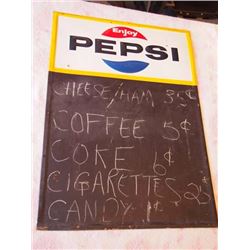 Enjoy
PEPSI
CHEESE/HAM 35¢
COFFEE 5¢
COKE 6¢
CIGARETTES 25
CANDY 1¢